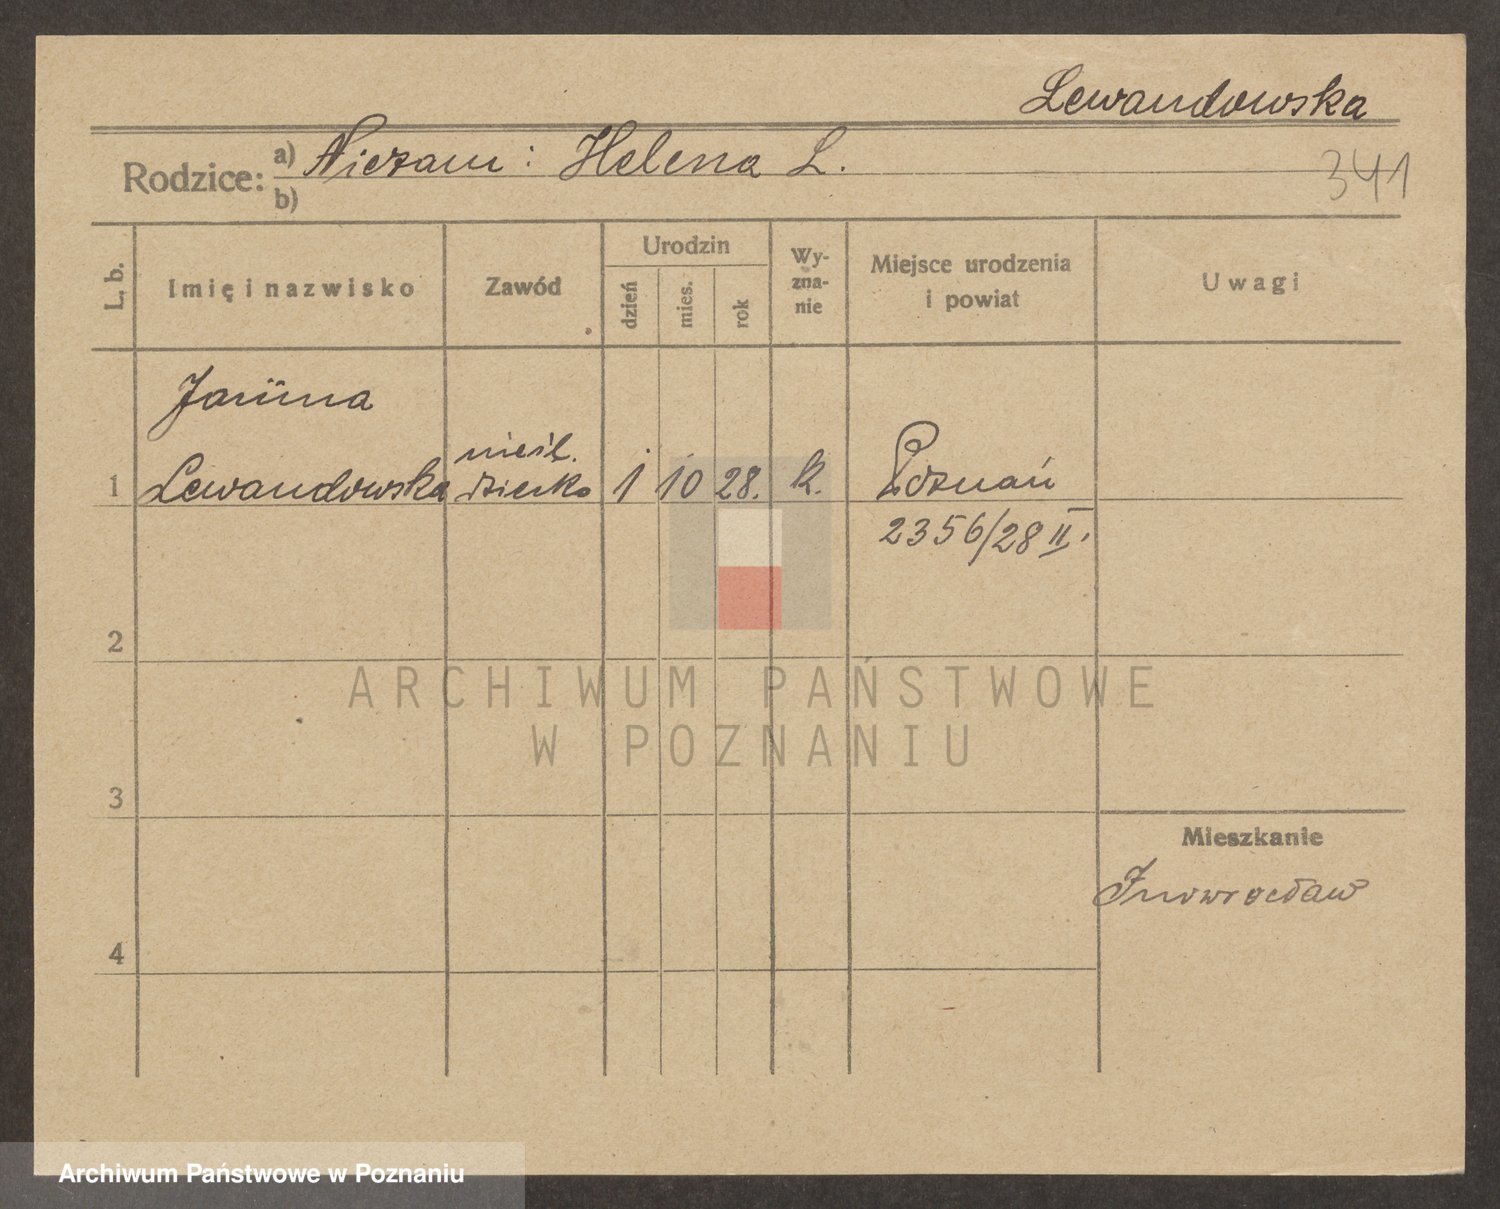 Lewandowska
Rodzice: a) Niezam: Helena L.
b)
341
L. b.
Imię i nazwisko
Zawód
Urodzin
dzień
mies.
rok
Wy-
zna-
nie
Miejsce urodzenia
i powiat
Uwagi
Janina
1 Lewandowska
nieśl.
dziecko
1 10 28. k. Poznań
2356/28 II.
2
3
4
Mieszkanie
Inowrocław
ARCHIWUM PAŃSTWOWE
W POZNANIU
Archiwum Państwowe w Poznaniu